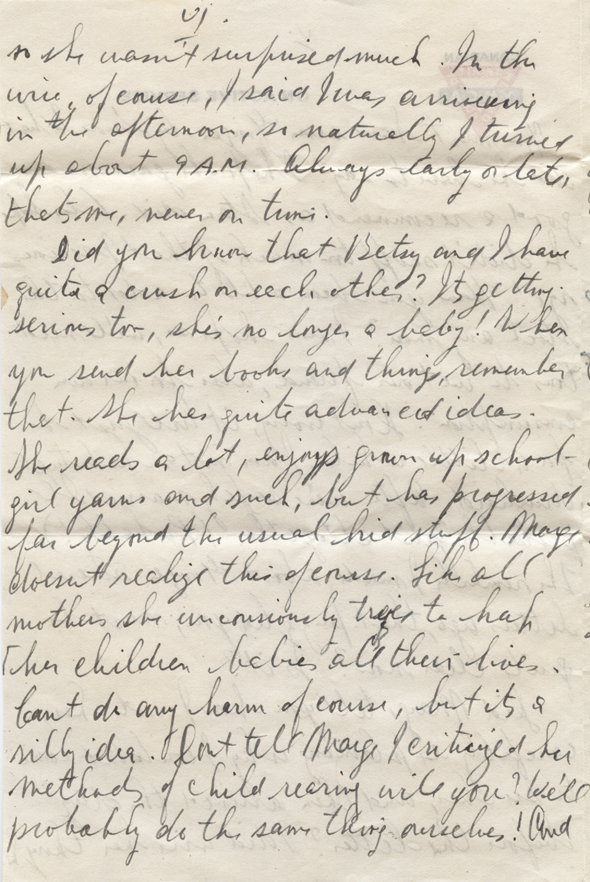 vj.
so she wasn't surprised much. In the
wire, of course, I said I was arriveing
in the afternoon, so naturally I turned
up about 9 A.M. Always early or late,
thats me, never on time.
Did you know that Betsy and I have
quite a crush on each other? Its getting
serious too, she's no longer a baby! When
you send her books and things, remember
that. She has quite advanced ideas.
She reads a lot, enjoys grown up school-
girl yarns and such, but has progressed
far beyond the usual kid stuff. Marge
doesn't realize this of course. Like all
mothers she unconsiously tries to keep
her children babies all their lives.
Can't do any harm of course, but its a
silly idea. Don't tell Marge I criticized her
methods of child rearing will you? We'll
probably do the same thing ourselves! And